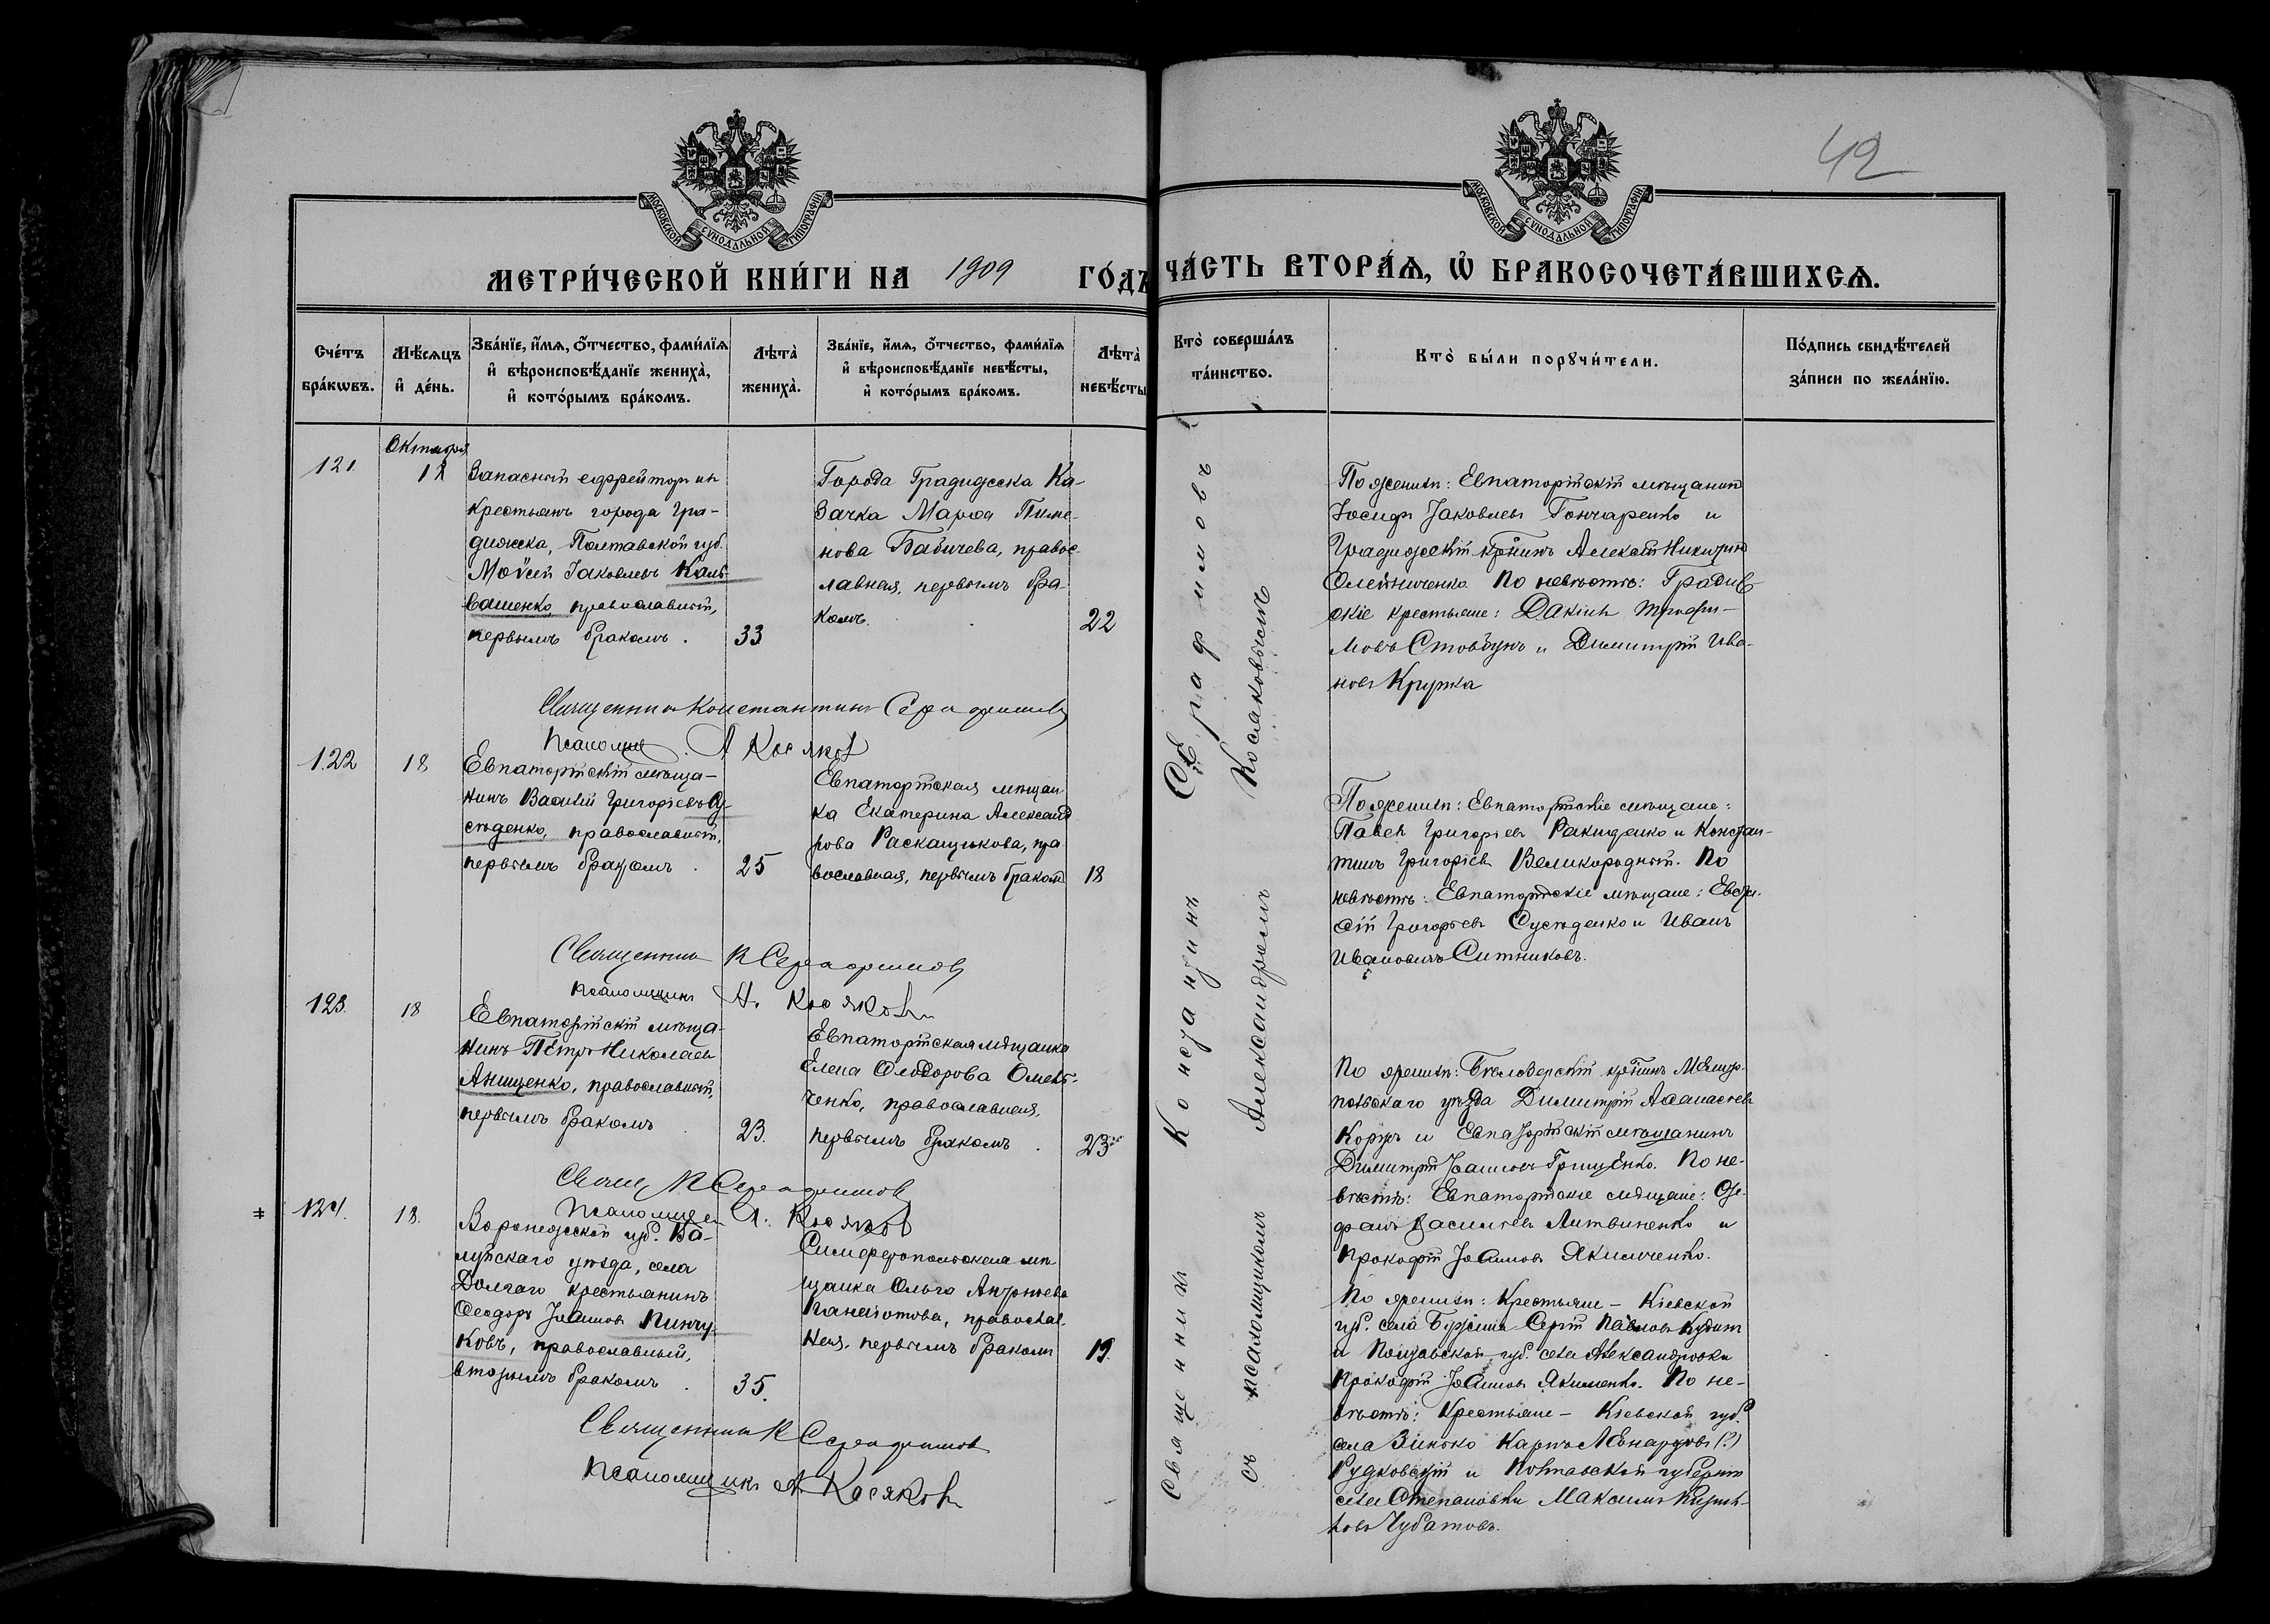 42
МОСКОВСКОЙ СѴНОДАЛЬНОЙ ТИПОГРАФІИ
МОСКОВСКОЙ СѴНОДАЛЬНОЙ ТИПОГРАФІИ
МЕТРИ́ЧЕСКОЙ КНИ́ГИ НА 1909 ГО́ДЪ
ЧА́СТЬ ВТОРА́Ѧ, Ѽ БРАКОСОЧЕТА́ВШИХСѦ.
Сче́тъ
бра́кѡвъ.
Мѣ́сѧцъ
и҆ де́нь.
Зва́нїе, и҆́мѧ, ѻ҆́тчество, фами́лїѧ
и҆ вѣроисповѣ́данїе жениха̀,
и҆ кото́рымъ бра́комъ.
Лѣта̀
жениха̀.
Зва́нїе, и҆́мѧ, ѻ҆́тчество, фами́лїѧ
и҆ вѣроисповѣ́данїе невѣ́сты,
и҆ кото́рымъ бра́комъ.
Лѣта̀
невѣ́сты
Кто̀ соверша́лъ
та́инство.
Кто̀ бы́ли порꙋчи́тели.
По́дпись свидѣ́телей
за́писи по жела́нїю.
Октября
121.
18
Запасный ефрейторъ изъ
крестьянъ города Гра-
дижска, Полтавской губ.
Моѵсей Іаковлевъ Каль-
сашенко, православный,
первымъ бракомъ.
33
Города Градижска Ка-
зачка Марѳа Пиме-
нова Бабичева, правос-
лавная, первымъ бра-
комъ.
22
По женихѣ: Евпаторійскій мѣщанинъ
Іосифъ Іаковлевъ Гончаренко и
Градижскій кр-нинъ Алексій Никитинъ
Олейниченко. По невѣстѣ: Градиж-
скіе крестьяне: Дакій Трофи-
мовъ Стовбунъ и Димитрій Ива-
новъ Кружка
Священникъ Константинъ Серафимовъ
Псаломщ. А Косяковъ
122
18
Евпаторійскій мѣща-
нинъ Василій Григорьевъ Су-
сѣденко, православный,
первымъ бракомъ.
25
Евпаторійская мѣщан-
ка Екатерина Александ-
рова Раскащикова, пра-
вославная, первымъ бракомъ
18
По женихѣ: Евпаторійскіе мѣщане:
Павелъ Григорьевъ Ракиденко и Констан-
тинъ Григорьевъ Великородный. По
невѣстѣ: Евпаторійскіе мѣщане: Евсе-
сій Григорьевъ Сусѣденко и Иванъ
Ивановичъ Ситниковъ.
Священникъ К Серафимовъ
Псаломщикъ А. Косяковъ
123.
18
Евпаторійскій мѣща-
нинъ Петръ Николаевъ
Анищенко, православный,
первымъ бракомъ
23.
Евпаторійская мѣщанка
Елена Ѳеодорова Олей-
ченко, православная,
первымъ бракомъ.
23
По женихѣ: Бѣлозерскій кр-нинъ Мелито-
польскаго уѣзда Димитрій Аѳанасіевъ
Коржъ и Евпаторійскій мѣщанинъ
Димитрій Іоанновъ Грищенко. По не-
вѣстѣ: Евпаторійскіе мѣщане: Сте-
фанъ Василіевъ Литвиненко и
Прокофій Іоанновъ Якимченко.
Свящ К Серафимовъ
Псаломщикъ А. Косяковъ
124.
18.
Воронежской губ. Ва-
луйскаго уѣзда, села
Долгаго крестьянинъ
Ѳеодоръ Іоанновъ Пинчу-
ковъ, православный,
вторымъ бракомъ.
35.
Симферопольская мѣ-
щанка Ольга Андреева
Панаіотова, православ-
ная, первымъ бракомъ
19.
По женихѣ: Крестьяне – Кіевской
губ. села Сергій Павловъ
и Полтавской губ. села Александровки
Прокофій Іоанновъ Якименко. По не-
вѣстѣ: Крестьяне – Кіевской губ.
села Зинько Карпъ Менардовъ (?)
Рудковскій и Полтавской губерніи
села Степановки Максимъ
Чубатовъ.
Священникъ К Серафимовъ
Псаломщикъ А Косяковъ
Священникъ Константинъ Серафимовъ
съ псаломщикомъ Александромъ Косяковымъ